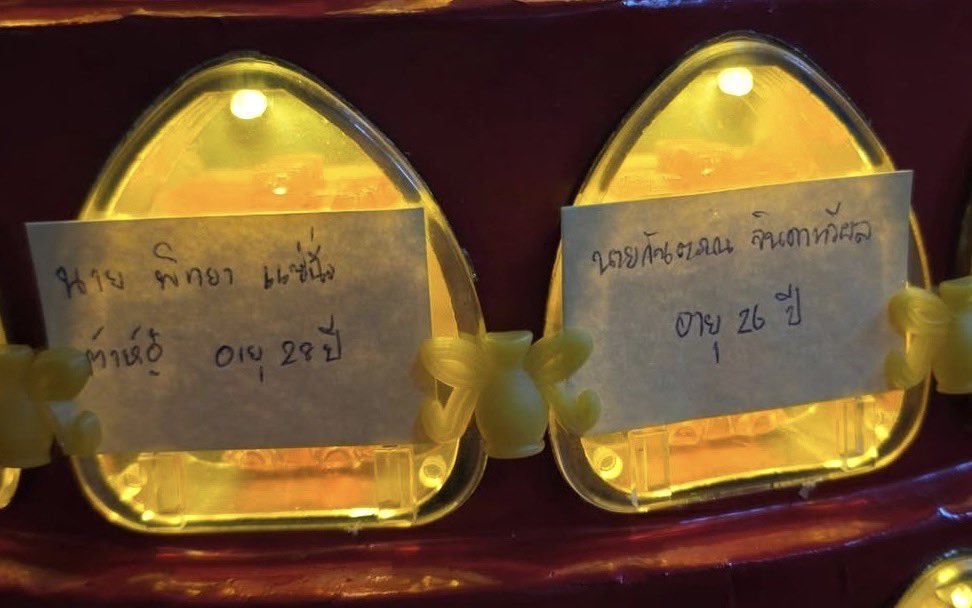 นาย พิทยา แซ่ปั้ง
ต้าห์อู๋ อายุ 28 ปี
นายกันตภณ จินดาทวีผล
อายุ 26 ปี